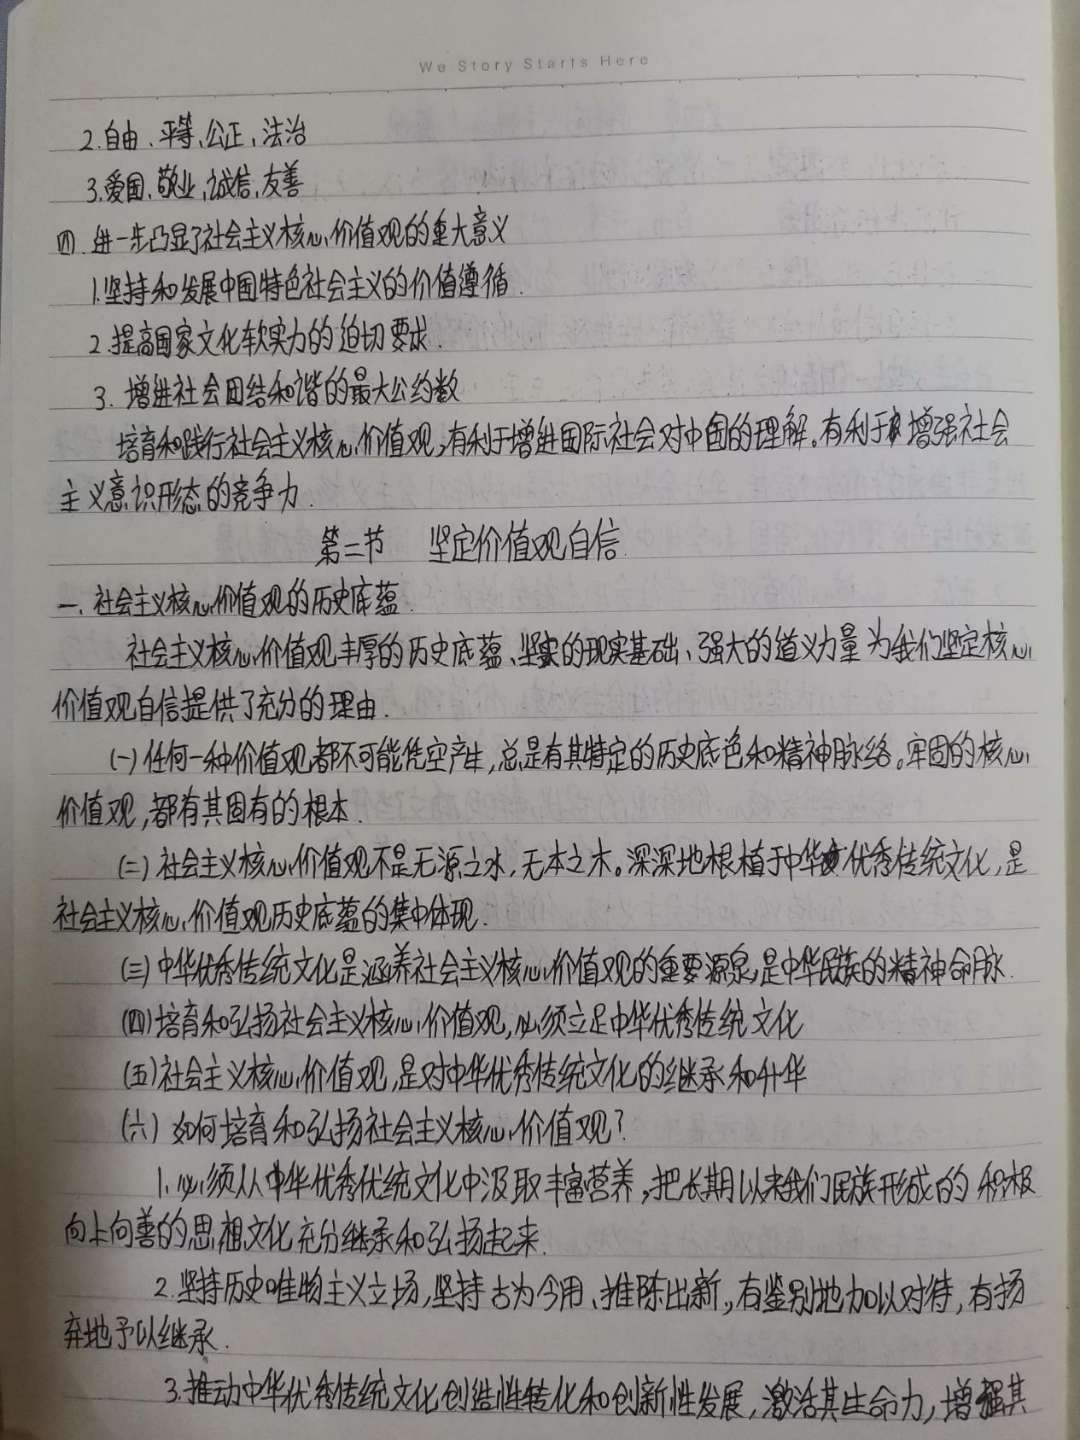 We Story Starts Here
2.自由、平等、公正、法治
3.爱国、敬业、诚信、友善
四.进一步凸显了社会主义核心价值观的重大意义
1.坚持和发展中国特色社会主义的价值遵循.
2.提高国家文化软实力的迫切要求.
3.增进社会团结和谐的最大公约数
培育和践行社会主义核心价值观,有利于增进国际社会对中国的理解。有利于增强社会
主义意识形态的竞争力.
第二节 坚定价值观自信.
一.社会主义核心价值观的历史底蕴.
社会主义核心价值观丰厚的历史底蕴、坚实的现实基础、强大的道义力量为我们坚定核心
价值观自信提供了充分的理由.
(一)任何一种价值观都不可能凭空产生,总是有其特定的历史底色和精神脉络。牢固的核心
价值观,都有其固有的根本.
(二)社会主义核心价值观不是无源之水,无本之木。深深地根植于中华优秀传统文化,是
社会主义核心价值观历史底蕴的集中体现.
(三)中华优秀传统文化是涵养社会主义核心价值观的重要源泉,是中华民族的精神命脉.
(四)培育和弘扬社会主义核心价值观,必须立足中华优秀传统文化
(五)社会主义核心价值观,是对中华优秀传统文化的继承和升华
(六)如何培育和弘扬社会主义核心价值观?
1.必须从中华优秀优统文化中汲取丰富营养,把长期以来我们民族形成的积极
向上向善的思想文化充分继承和弘扬起来.
2.坚持历史唯物主义立场,坚持古为今用、推陈出新,有鉴别地加以对待,有扬
弃地予以继承.
3.推动中华优秀传统文化创造性转化和创新性发展,激活其生命力,增强其